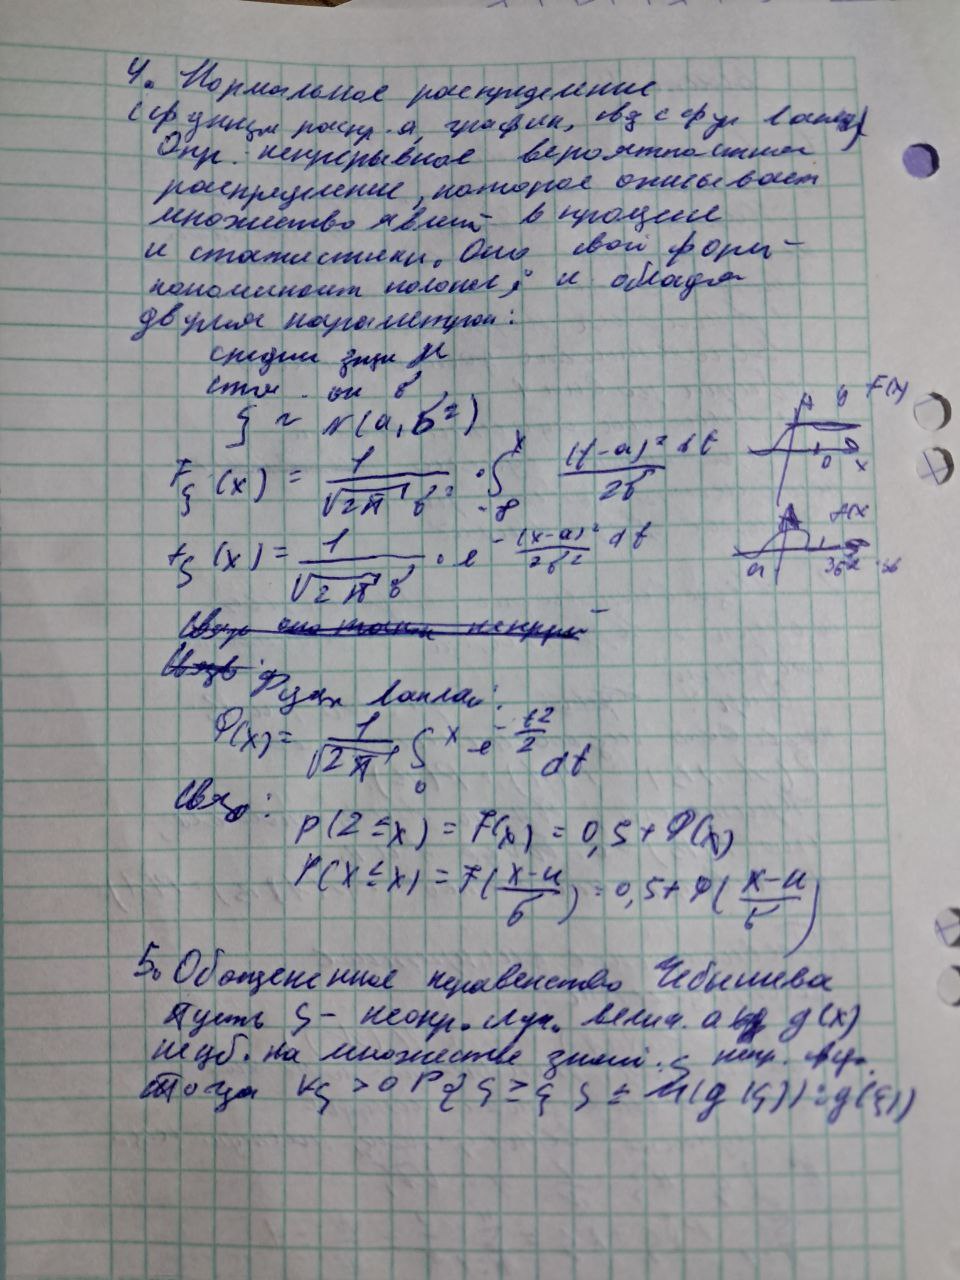 4. Нормальное распределение
(функция распр. а, график, связь с фун Лапла)
Опр. непрерывное вероятностное
распределение, которое описывает
множество явлен в процессе
и статистики. Оно свой форм-
напоминает колокол, и облада
двумя параметрам:
средн знач μ
ста . от σ
ξ ~ N(a, σ²)
F_ξ(x) = 1/(√2π σ) · ∫_{-∞}^{x} (t-a)² dt / 2σ
F(x)
0 x
f_ξ(x) = 1/(√2π σ) · e^{-(x-a)² dt / 2σ²}
f(x
a 3σ
Функ Лаплас:
Φ(x) = 1/√2π ∫_0^x e^{-t²/2} dt
Связь:
P(Z ≤ x) = F(x) = 0,5 + Φ(x)
P(X ≤ x) = F((x-μ)/σ) = 0,5 + Φ((x-μ)/σ)
5. Обощененное неравенство Чебышева
Пусть ξ - неопр. случ. велич. а g(x)
не уб. на множестве знач. ξ непр. фун.
Тогда